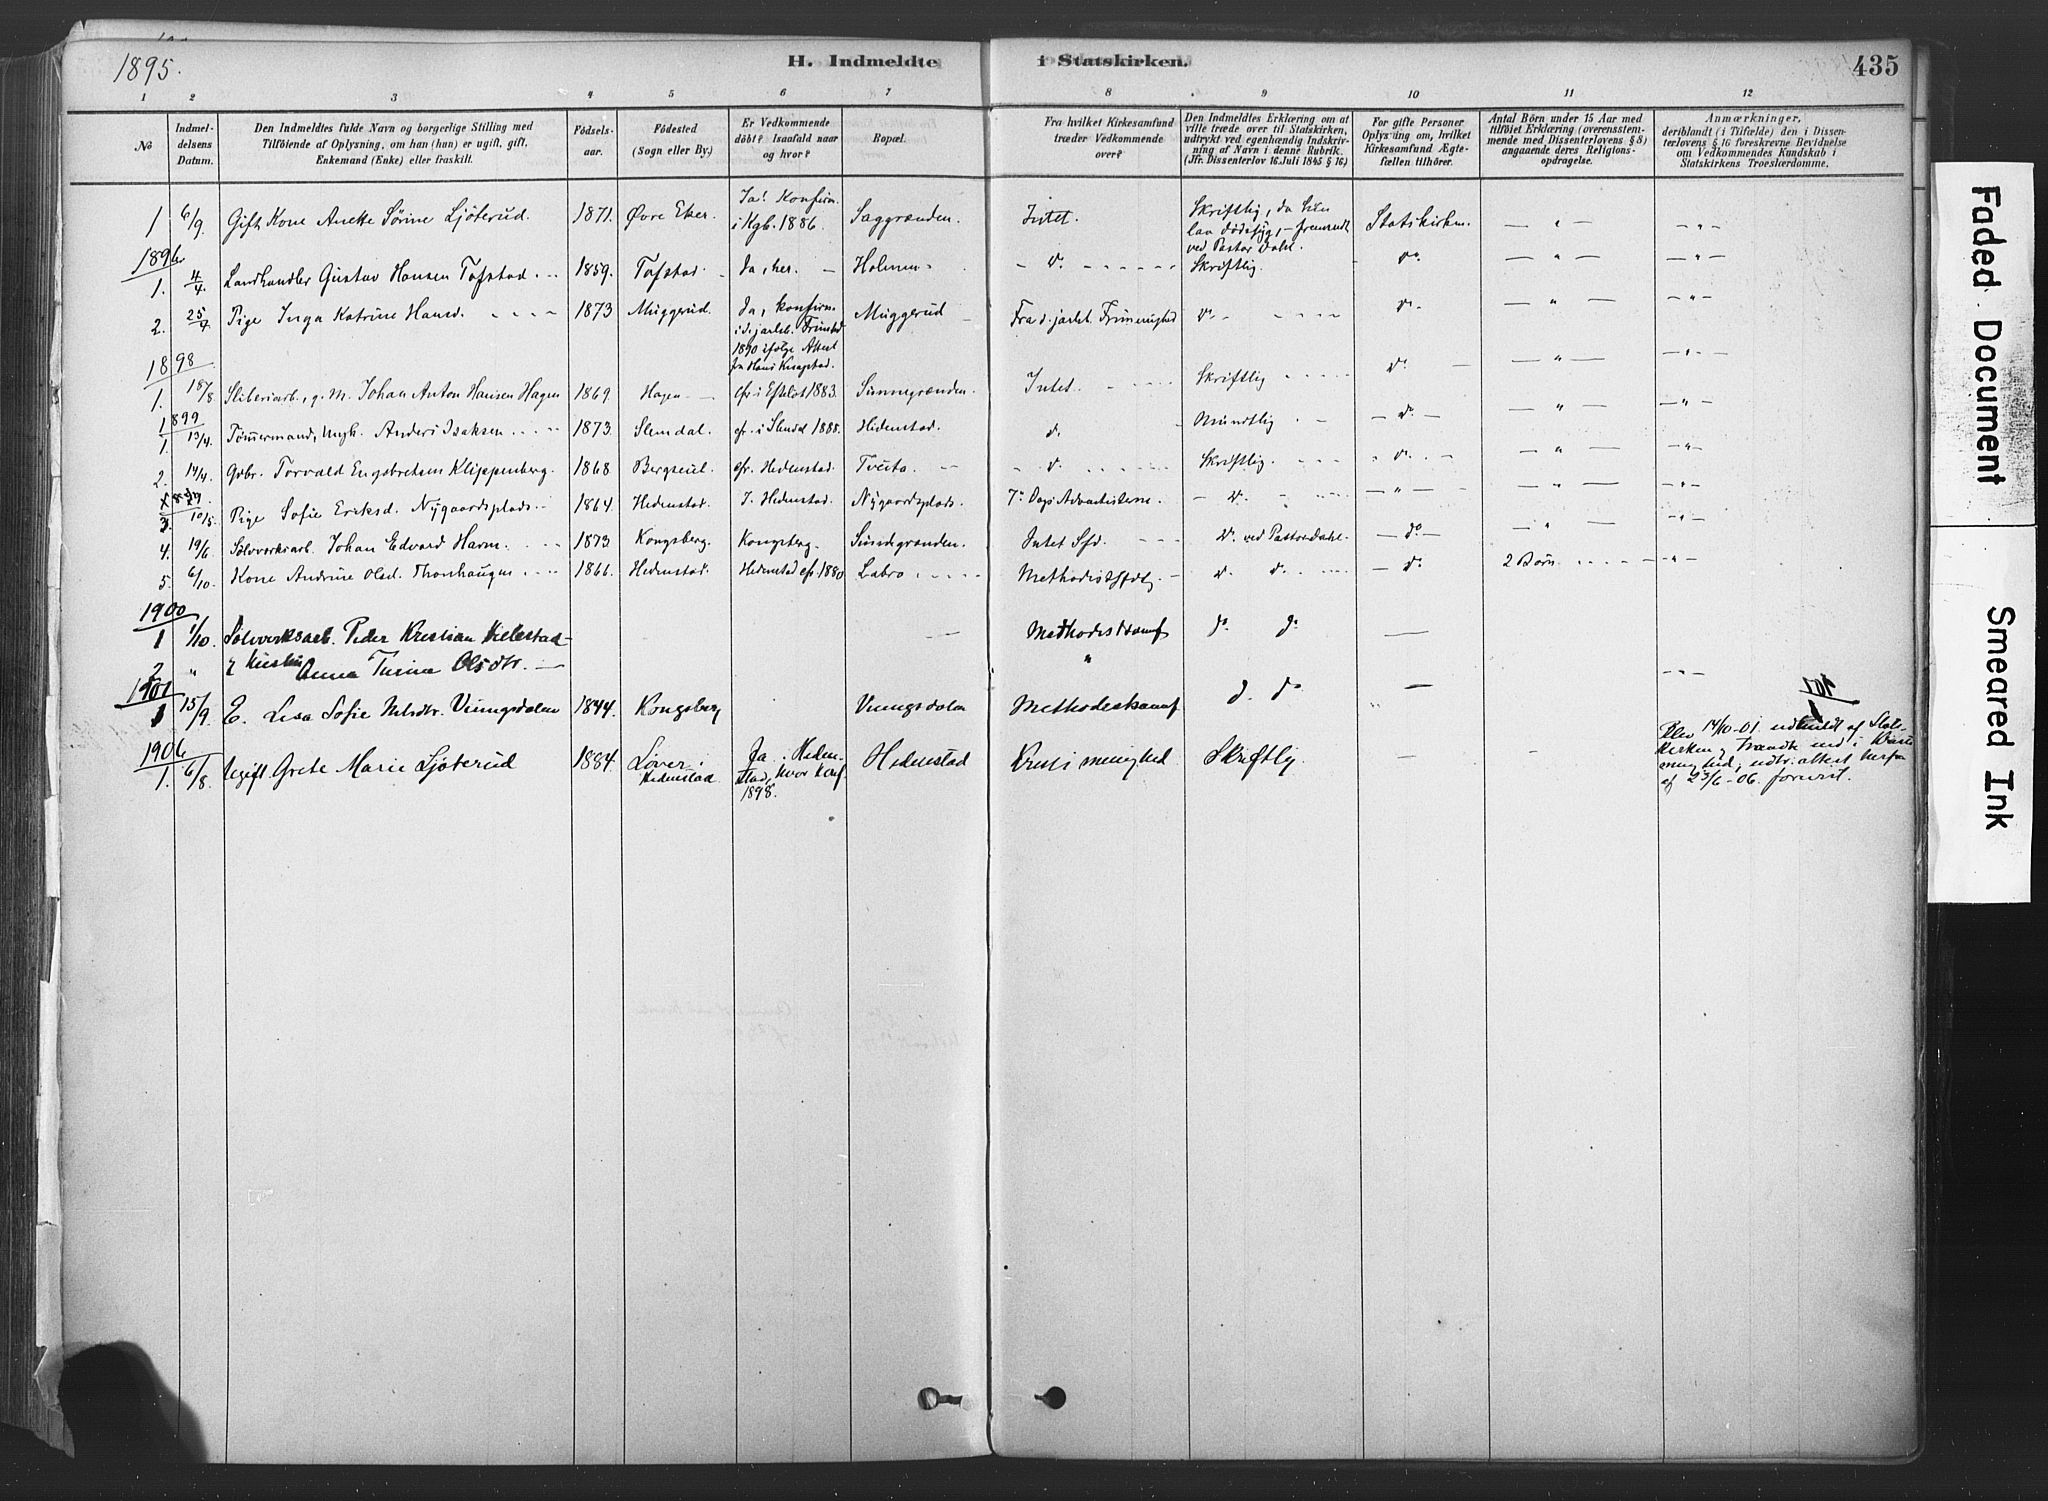 1895.
H. Indmeldte i Statskirken.
435
1 2 3 4 5 6 7 8 9 10 11 12
No
Indmel-
delsens
Datum.
Den Indmeldtes fulde Navn og borgerlige Stilling med
Tilföiende af Oplysning, om han (hun) er ugift, gift,
Enkemand (Enke) eller fraskilt.
Födsels-
aar.
Födested
(Sogn eller By.)
Er Vedkommende
döbt? Isaafald naar
og hvor?
Bopæl.
Fra hvilket Kirkesamfund
træder Vedkommende
over?
Den Indmeldtes Erklæring om at
ville træde over til Statskirken,
udtrykt ved egenhændig Indskriv-
ning af Navn i denne Rubrik.
(Jfr. Dissenterlov 16 Juli 1845 § 16)
For gifte Personer
Oplysning om, hvilket
Kirkesamfund Ægte-
fællen tilhörer.
Antal Börn under 15 Aar med
tilföiet Erklæring (overensstem-
mende med Dissenterlovens § 8)
angaaende deres Religions-
opdragelse.
Anmærkninger,
deriblandt (i Tilfælde) den i Dissen-
terlovens § 16 foreskrevne Bevidnelse
om Vedkommendes Kundskab i
Statskirkens Troeslærdomme.
1 6/9. Gift Kone Anette Sörine Ljöterud. 1871. Øvre Eker. Ja! Konfirm. i Kgb. 1886. Saggrænden. Intet. Skriftlig, da hun laa dödssyg, - fremsendt ved Pastor Dahl. Statskirken. — " — — " —
1896
1. 4/4. Landhandler Gustav Hansen Tofstad 1859. Tofstad Ja, her. Holmen d. Skriftlig. do — " — — " —
2. 25/4 Pige Inga Katrine Hansd. 1873 Muggerud. Ja, konfirm. 1890 ifølge Attest fra Hans Knapstad. Muggerud Fra d. jarlsb. Frimenighed do do — " — — " —
1898
1. 18/8 Sliberiarb., g. M. Johan Anton Hansen Hagen 1869 Hagen cfr i Efteløt 1883. Sunnegrænden. Intet. Skriftlig do — " — — " —
1899
1. 13/4. Tömmermand, Ungk. Anders Isaksen 1873. Slemdal. cfr. i Slemdal 1888. Hedenstad. d. Mundtlig do — " — — " —
2. 14/4. Gbr. Torvald Engebretsen Klippenberg. 1868 Bergseul. cfr. Hedenstad. Tveita d. Skriftlig. do — " — — " —
3. 10/5. Pige Sofie Eriksd. Nygaardsplads. 1864 Hedenstad. I Hedenstad. Nygaardsplads. 7de Dags Adventisterne. do — " — — " — — " —
4. 19/6. Sølvverksarb. Johan Edvard Harm. 1873. Kongsberg. Kongsberg. Sundegrænden. Intet Sfd. do ved Pastor Dahl. — do — — " — — " —
5. 6/10. Kone Andrine Olsd. Thorshaugen 1866. Hedenstad. Hedenstad cfr. 1880. Labro Methodistsfdg. do do — do 2 Börn — " —
1900
1 1/10. Sølvverksarb. Peder Kristian Hellestad Methodistsamf do do —
2 " & Hustru Anna Turine Olsdtr. " — " —
1901
1 15/9. E. Lisa Sofie Nilsdtr. Vungsdalen 1844. Kongsberg Vungsdalen Methodistsamf d. do —
1906
1. 6/8. Ugift Grete Marie Ljöterud 1884. Løver i Hedenstad Ja i Hedenstad, hvor konf. 1898. Hedenstad Kristi menighed Skriftlig. — — Blev 14/10-01 udmeldt af Stats-
kirken & traadte ind i Kristi
menighed; udtr. attest herfra
af 23/6-06. forevist.
Faded Document
Smeared Ink